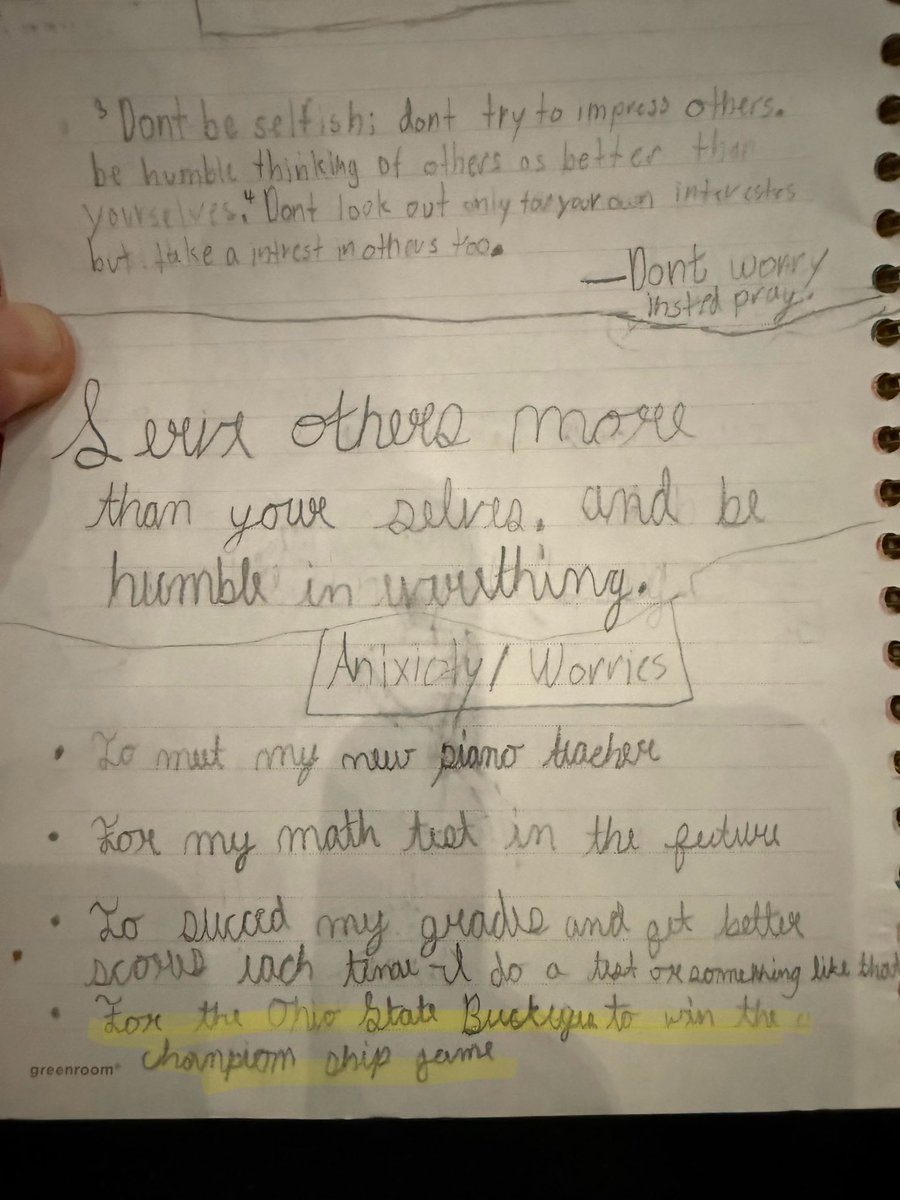 ³ Dont be selfish; dont try to impress others.
be humble thinking of others as better than
yourselves. ⁴ Dont look out only for your own interestes
but take a intrest in others too.
—Dont worry
insted pray.
Serve others more
than youre selves. and be
humble in everthing.
Anixioty / Worries
• To meet my new piano teacher
• For my math test in the fucture
• To succed my grades and get better
scores each time I do a test or something like that
• For the Ohio State Buckeyes to win the
champiom ship game
greenroom